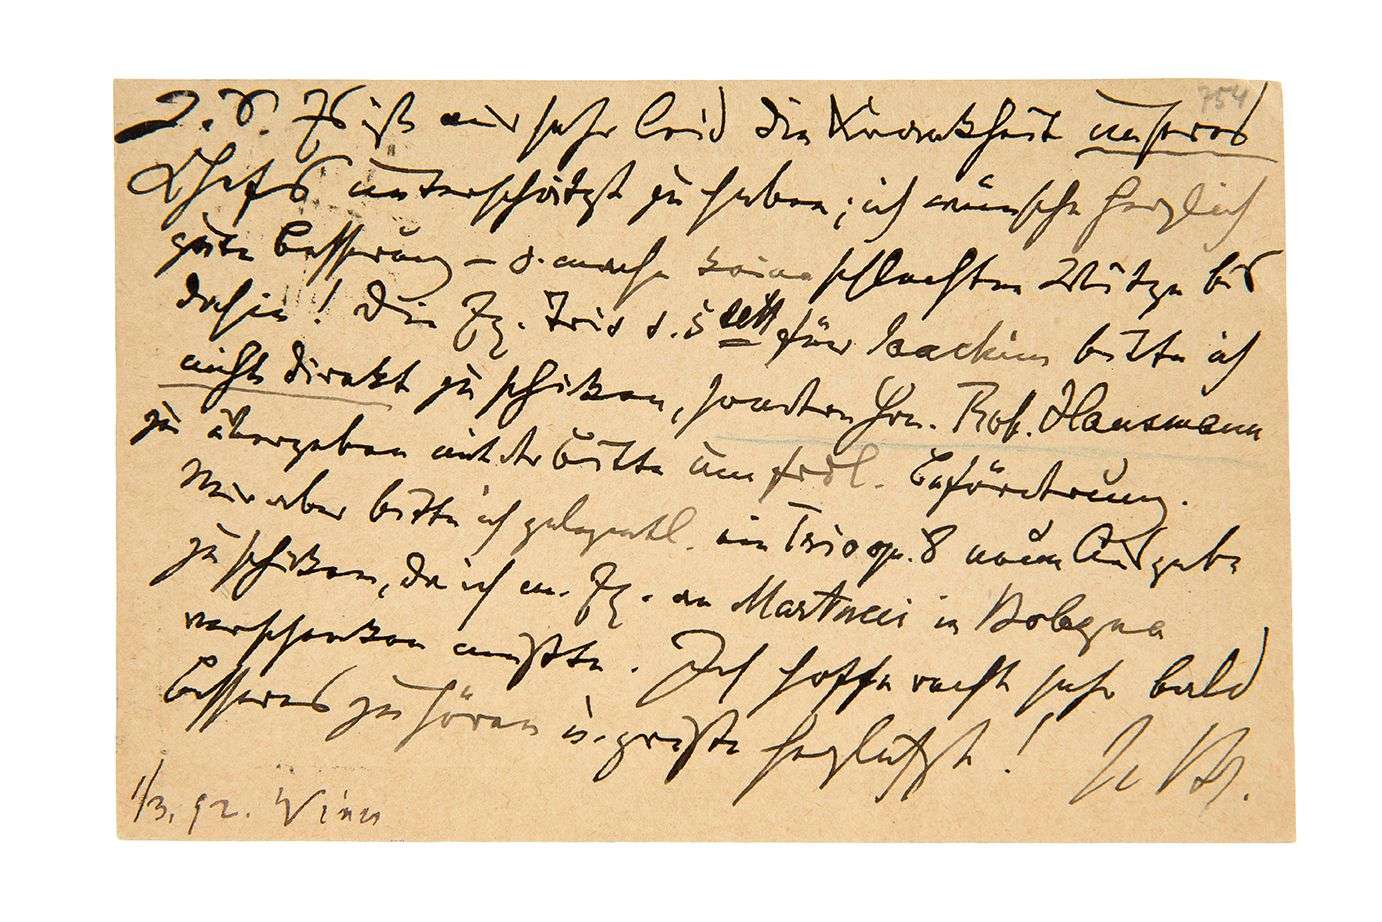 754
L. V. Es ist mir sehr leid die Krankheit unseres
Chefs unterschätzt zu haben; ich wünsche herzlich
gute Besserung – u. mache keine schlechten Witze bis
dahin! Die Fz. Trio u. 5tett für Joachim bitte ich
nicht direkt zu schicken, sondern Hrn. Rob. Hausmann
zu übergeben mit der Bitte um frdl. Beförderung.
Mir aber bitte ich gelegentl. ein Trio op. 8 neue Ausgabe
zu schicken, da ich m. Ex. an Martucci in Bologna
verschenken mußte. Ich hoffe recht sehr bald
Besseres zu hören u. grüße herzlichst! Ihr J. Br.
1/3. 92. Wien